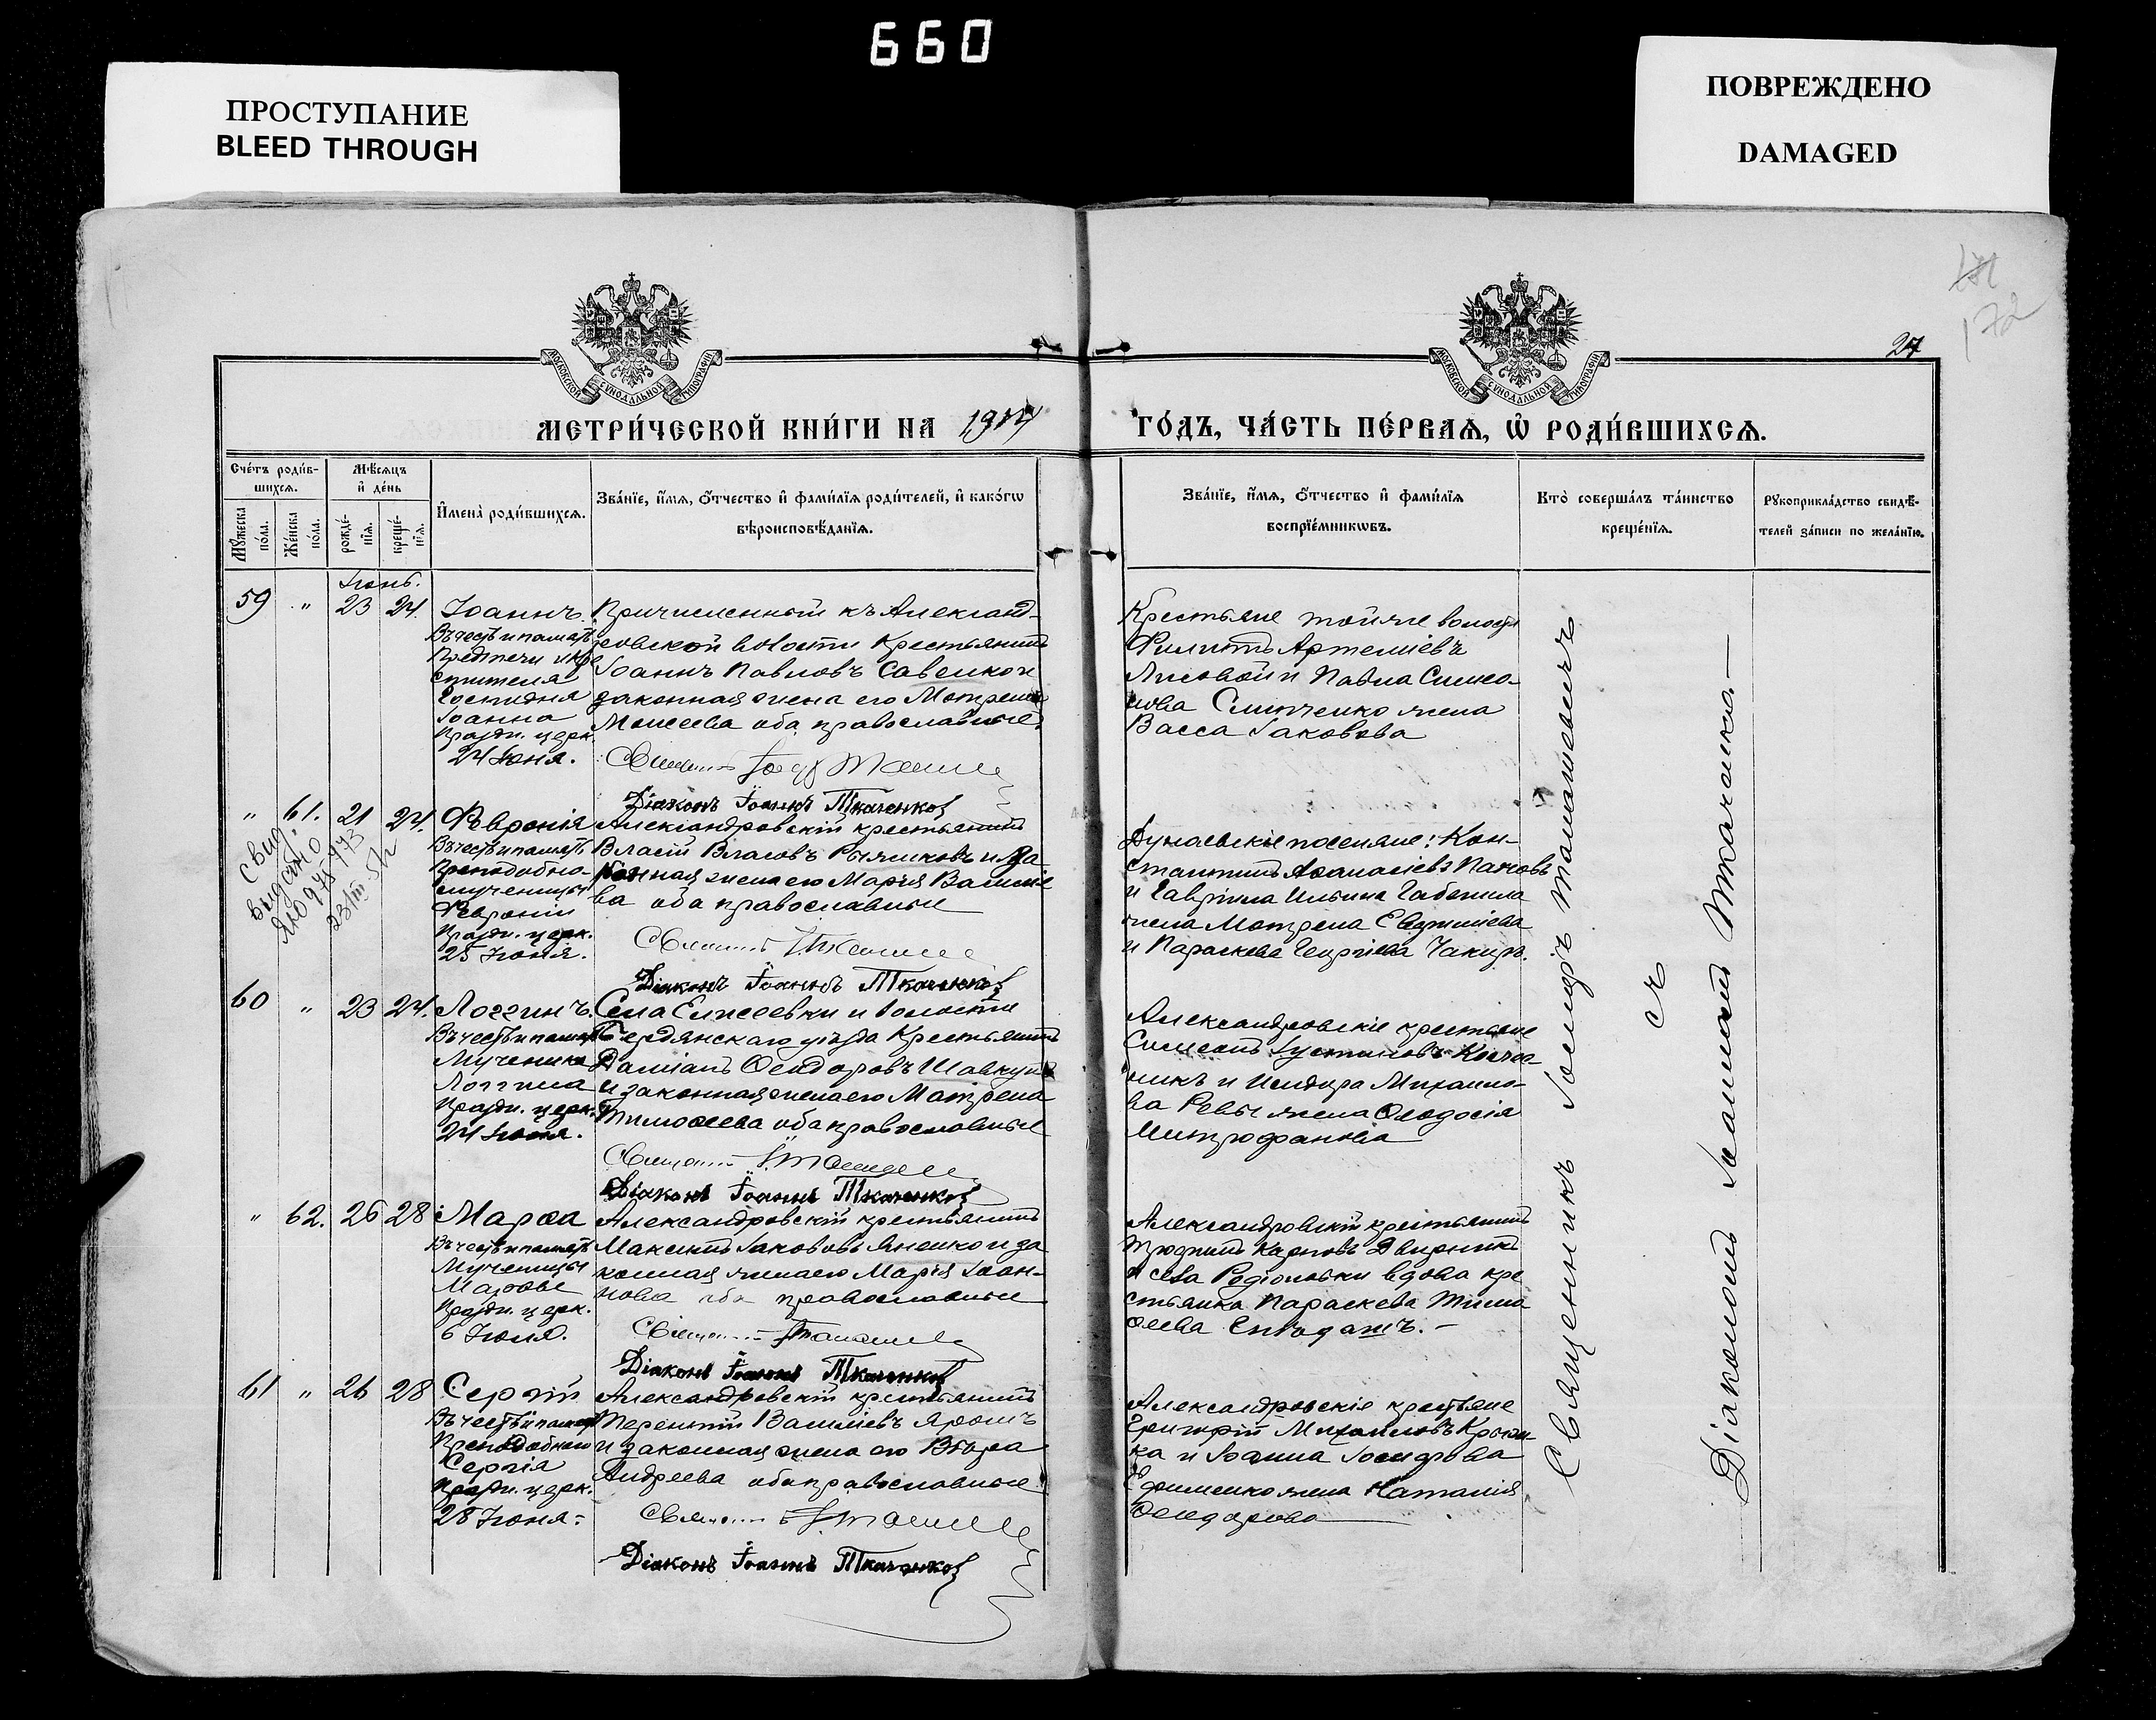 660
ПРОСТУПАНИЕ
BLEED THROUGH
ПОВРЕЖДЕНО
DAMAGED
172
27
МОСКОВСКОЙ СѴНОДАЛЬНОЙ ТИПОГРАФІИ
МОСКОВСКОЙ СѴНОДАЛЬНОЙ ТИПОГРАФІИ
МЕТРИ́ЧЕСКОЙ КНИ́ГИ НА 1914 ГО́ДЪ, ЧА́СТЬ ПЕ́РВАѦ, Ѡ РОДИ́ВШИХСѦ.
Сче́тъ роди́в-
шихсѧ.
Мѣ́сѧцъ
и҆ де́нь
Мꙋ́жеска
по́ла.
Же́нска
по́ла.
рожде́-
нїѧ.
креще́-
нїѧ.
И҆мена̀ роди́вшихсѧ.
Зва́нїе, и҆́мѧ, о҆́тчество и҆ фами́лїѧ роди́телей, и҆ како́гѡ
вѣроисповѣ́данїѧ.
Зва́нїе, и҆́мѧ, о҆́тчество и҆ фами́лїѧ
воспрїе́мникѡвъ.
Кто̀ соверша́лъ та́инство
креще́нїѧ.
Рꙋкоприкла́дство свидѣ́-
телей за́писи по жела́нїю.
Іюнь.
59 " 23 24.
Іоаннъ.
Въ честь и память
Предтечи и Кре
стителя
Господня
Іоанна
Праздн. церк.
24 Іюня.
Причисленный къ Александ-
ровской волости Крестьянинъ
Іоаннъ Павловъ Савенко и
законная жена его Мотрена
Моисеева оба православные
Діаконъ Іоаннъ Ткаченко
Крестьяне той же волости
Филиппъ Артеміевъ
Лисовой и Павла Симео-
нова Слипченко жена
Васса Іаковова
" 61. 21 24.
Февронія
Въ честь и память
Преподобно-
мученицы
Февроніи
Праздн. церк.
25 Іюня.
Александровскій крестьянинъ
Власій Власовъ и за
конная жена его Марія Василіе
ва оба православные
Діаконъ Іоаннъ Ткаченко
Дунаевскіе поселяне: Кон-
стантинъ Аѳанасіевъ
и Гавріила Ильина
жена Мотрена Евфиміева
и Параскева Георгіева Чакиръ.
Свид.
выдано
23/III
60 " 23 24.
Логгинъ.
Въ честь и память
Мученика
Логгина
Праздн. церк.
24 Іюня.
Села Елисеевки и волости
Бердянскаго уѣзда Крестьянинъ
Даміанъ Ѳеодоровъ
и законная жена его Матрена
Тимоѳеева оба православные
Діаконъ Іоаннъ Ткаченко
Александровскіе крестьяне
Симеонъ Іустиновъ
и Исидора Михаило-
ва Ревы жена Ѳеодосія
Митрофанова
" 62. 26 28
Марѳа
Въ честь и память
Мученицы
Марѳы
Праздн. церк.
6 Іюля.
Александровскій крестьянинъ
Максимъ Іаковов Яненко и за
конная жена его Марія Іоан-
нова оба православные
Діаконъ Іоаннъ Ткаченко
Александровскій крестьянинъ
Трофимъ Карповъ Двирникъ
и села Родіоновки вдова кре
стьянка Параскева Тимо
ѳеева
61 " 26 28
Сергій
Въ честь и память
Преподобнаго
Сергія
Праздн. церк.
28 Іюня.
Александровскій крестьянинъ
Терентій Василіевъ Ярошъ
и законная жена его Вѣра
Андреева оба православные
Діаконъ Іоаннъ Ткаченко
Александровскіе крестьяне
Григорій Михаиловъ
ка и Іоанна Іосифова
Ефименко жена Наталія
Ѳеодорова
Священникъ Іосифъ Томашевичъ
съ
Діакономъ Іоанномъ Ткаченко.